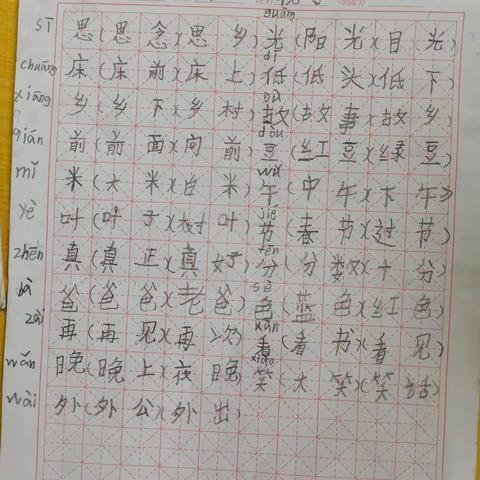 guāng
sī 思(思念)(思乡)光(阳光)(目光)
dī
chuáng 床(床前)(床上)低(低头)(低下)
gù
xiāng 乡(乡下)(乡村)故(故事)(故乡)
dòu
qián 前(前面)(向前)豆(红豆)(绿豆)
wǔ
mǐ 米(大米)(白米)午(中午)(下午)
jié
yè 叶(叶子)(树叶)节(春节)(过节)
fēn
zhēn 真(真正)(真好)分(分数)(十分)
sè
bà 爸(爸爸)(老爸)色(蓝色)(红色)
kàn
zài 再(再见)(再次)看(看书)(看见)
xiào
wǎn 晚(晚上)(夜晚)笑(大笑)(笑话)
wài 外(外公)(外出)